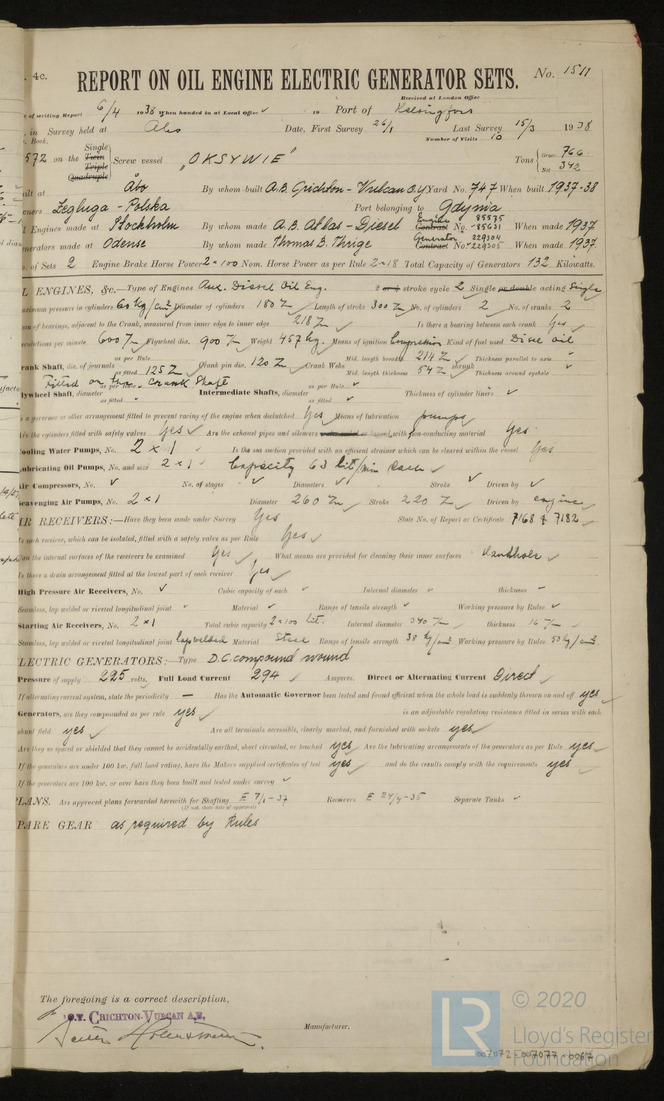 4c.
REPORT ON OIL ENGINE ELECTRIC GENERATOR SETS. No. 1511
Received at London Office
of writing Report 6/4 1938 When handed in at Local Office 19 Port of Helsingfors
in Survey held at Abo Date, First Survey 26/1 Last Survey 15/3 1938
Book. Number of Visits 10
572 on the Single Twin Triple Quadruple Screw vessel "OKSYWIE" Tons Gross 766 Net 342
built at Åbo By whom built A.B. Crichton-Vulcan O.Y. Yard No. 747 When built 1937-38
Owners Zegluga-Polska Port belonging to Gdynia
Engines made at Stockholm By whom made A.B. Atlas-Diesel Engine Contract No. 85635 -85631 When made 1937
Generators made at Odense By whom made Thomas B. Thrige Generator Contract No. 229304 229305 When made 1937
No. of Sets 2 Engine Brake Horse Power 2×100 Nom. Horse Power as per Rule 2×18 Total Capacity of Generators 132 Kilowatts.
OIL ENGINES, &c.—Type of Engines Aux. Diesel Oil Eng. 2 or 4 stroke cycle 2 Single or double acting Single
Maximum pressure in cylinders 60 kg/cm² Diameter of cylinders 180 Length of stroke 300 No. of cylinders 2 No. of cranks 2
Span of bearings, adjacent to the Crank, measured from inner edge to inner edge 218 Is there a bearing between each crank Yes
Revolutions per minute 600 Flywheel dia. 900 Weight 457 kg. Means of ignition Compression Kind of fuel used Diesel oil
Crank Shaft, dia. of journals as per Rule as fitted 125 Crank pin dia. 120 Crank Webs Mid. length breadth 214 Mid. length thickness 54 shrunk Thickness parallel to axis Thickness around eyehole
Fitted on the crank shaft
Flywheel Shaft, diameter as per Rule as fitted Intermediate Shafts, diameter as per Rule as fitted Thickness of cylinder liners
Is a governor or other arrangement fitted to prevent racing of the engine when declutched Yes Means of lubrication pumps
Are the cylinders fitted with safety valves Yes Are the exhaust pipes and silencers water cooled or lagged with non-conducting material Yes
Cooling Water Pumps, No. 2 × 1 Is the sea suction provided with an efficient strainer which can be cleared within the vessel Yes
Lubricating Oil Pumps, No. and size 2 × 1 Capacity 63 lit/min each
Air Compressors, No. No. of stages Diameters Stroke Driven by
Scavenging Air Pumps, No. 2×1 Diameter 260 Stroke 220 Driven by engine
AIR RECEIVERS:—Have they been made under Survey Yes State No. of Report or Certificate 7168 & 7182
Is each receiver, which can be isolated, fitted with a safety valve as per Rule Yes
Can the internal surfaces of the receivers be examined Yes What means are provided for cleaning their inner surfaces Handhole
Is there a drain arrangement fitted at the lowest part of each receiver Yes
High Pressure Air Receivers, No. Cubic capacity of each Internal diameter thickness
Seamless, lap welded or riveted longitudinal joint Material Range of tensile strength Working pressure by Rules
Starting Air Receivers, No. 2×1 Total cubic capacity 2×100 lit. Internal diameter 340 thickness 16
Seamless, lap welded or riveted longitudinal joint lapwelded Material Steel Range of tensile strength 38 kg/mm² Working pressure by Rules 50 kg/cm²
ELECTRIC GENERATORS:—Type D.C. compound wound
Pressure of supply 225 volts. Full Load Current 294 Amperes. Direct or Alternating Current Direct
If alternating current system, state the periodicity — Has the Automatic Governor been tested and found efficient when the whole load is suddenly thrown on and off yes
Generators, are they compounded as per rule yes is an adjustable regulating resistance fitted in series with each
shunt field yes Are all terminals accessible, clearly marked, and furnished with sockets yes
Are they so spaced or shielded that they cannot be accidentally earthed, short circuited, or touched yes Are the lubricating arrangements of the generators as per Rule yes
If the generators are under 100 kw. full load rating, have the Makers supplied certificates of test yes and do the results comply with the requirements yes
If the generators are 100 kw. or over have they been built and tested under survey
PLANS. Are approved plans forwarded herewith for Shafting E 7/1-37 Receivers E 24/4-35 Separate Tanks
(If not, state date of approval)
SPARE GEAR as required by Rules
The foregoing is a correct description,
O.Y. CRICHTON-VULCAN A.B.
Manufacturer.
LR © 2020
Lloyd's Register
Foundation
007072-007077-0067